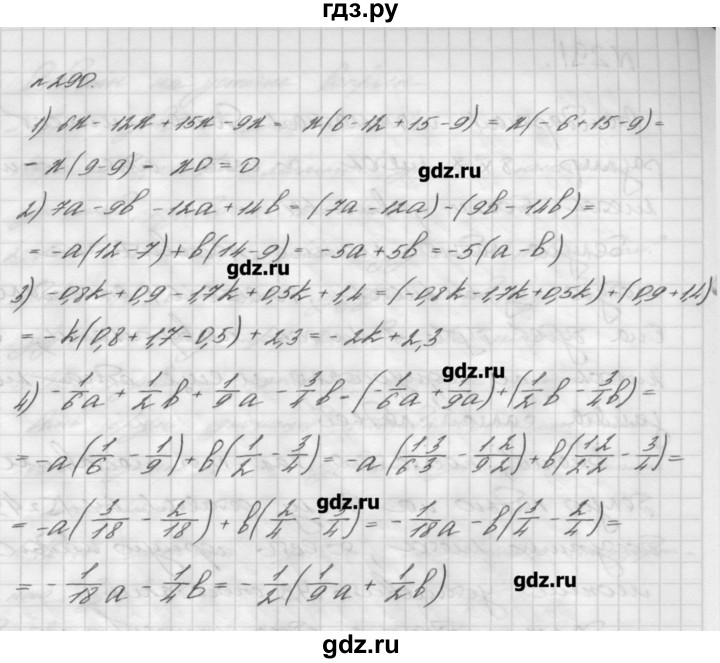 гдз.ру
№290.
1) 6x - 12x + 15x - 9x = x(6-12+15-9) = x(-6+15-9) =
= x(9-9) = x0 = 0
gdz.ru
2) 7a - 9b - 12a + 14b = (7a - 12a) - (9b - 14b) =
= -a(12-7) + b(14-9) = -5a + 5b = -5(a-b)
gdz.ru
3) -0,8k + 0,9 - 1,7k + 0,5k + 1,4 = (-0,8k - 1,7k + 0,5k) + (0,9 + 1,4)
= -k(0,8 + 1,7 - 0,5) + 2,3 = -2k + 2,3
gdz.ru
4) -1/6a + 1/2b + 1/9a - 3/4b = (-1/6a + 1/9a) + (1/2b - 3/4b) =
= -a(1/6 - 1/9) + b(1/2 - 3/4) = -a(1·3/6·3 - 1·2/9·2) + b(1·2/2·2 - 3/4) =
gdz.ru
= -a(3/18 - 2/18) + b(2/4 - 3/4) = -1/18a - b(3/4 - 2/4) =
= -1/18a - 1/4b = -1/2(1/9a + 1/2b)
gdz.ru
gdz.ru